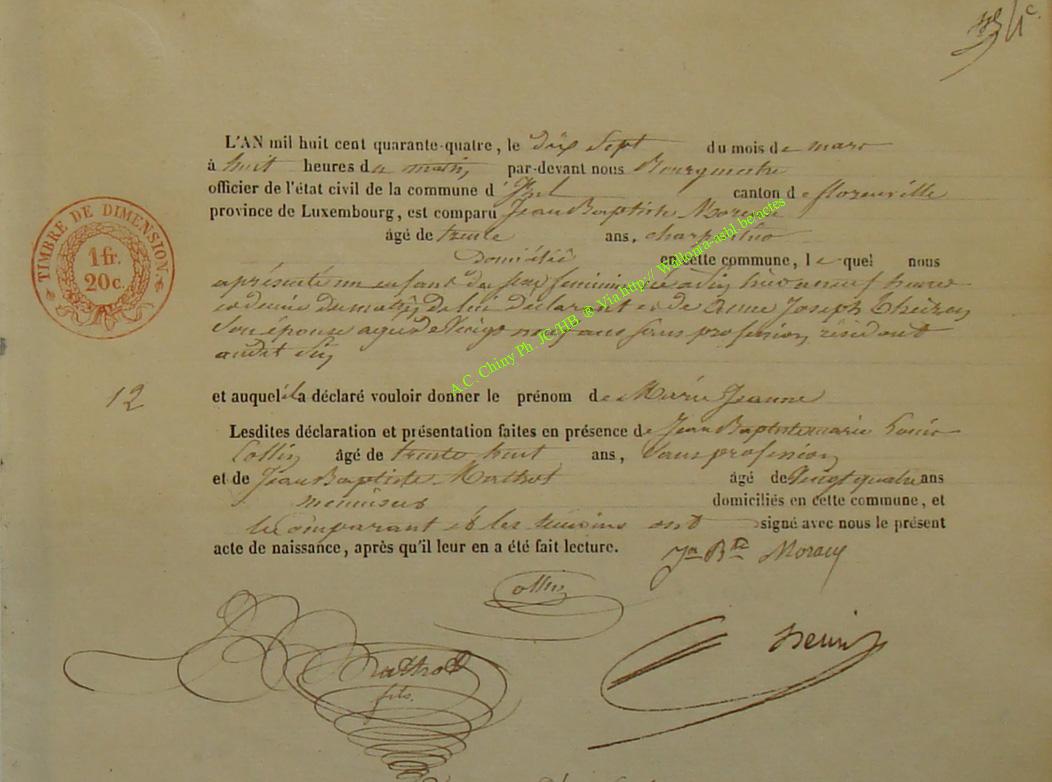 L'AN mil huit cent quarante-quatre, le dix Sept du mois de mars
à huit heures du matin, par-devant nous Bourgmestre
officier de l'état civil de la commune d' Izel canton de florenville
province de Luxembourg, est comparu Jean Baptiste
âgé de trente ans, charpentier
Domicilié en cette commune, lequel nous
a présenté un enfant du sexe feminin né a hier a neuf heures
et demie du matin, de lui déclarant et de Anne Joseph
Son épouse agée de Vingt neuf ans Sans profession, résidant
audit
12
et auquel il a déclaré vouloir donner le prénom de Marie Jeanne
Lesdites déclaration et présentation faites en présence de Jean Baptiste marie Louis
Collin âgé de trente huit ans, Sans profession
et de Jean Baptiste Mathot âgé de Vingt quatre ans
menuisier domiciliés en cette commune, et
le Comparant et les témoins ont signé avec nous le présent
acte de naissance, après qu'il leur en a été fait lecture.
Jn Bte
Collin
Mathot
fils.
TIMBRE DE DIMENSION.
1 fr.
20 c.
A.C. Chiny Ph. JC/HB. ® Via http:// Wallonia-asbl.be/actes